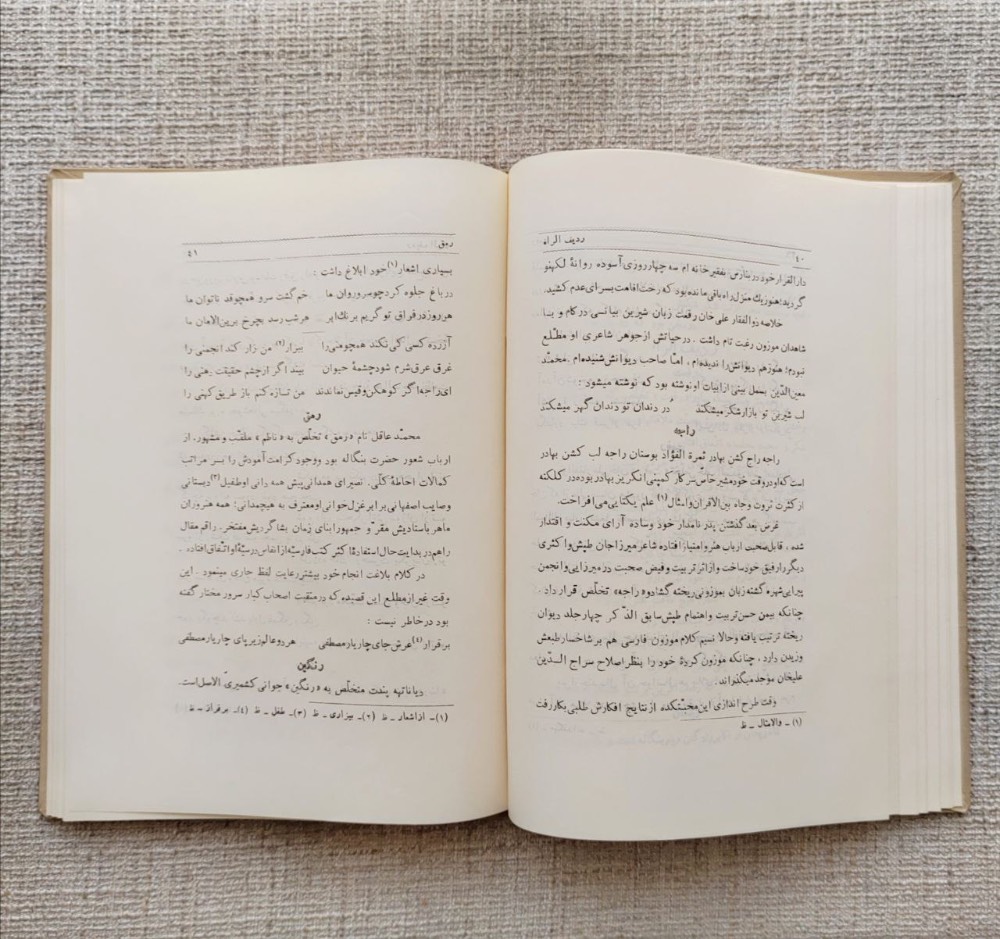 ٤٠ ردیف الراء
دارالقرار خود در بنارس، بفقیر خانه ام سه چهار روزی آسوده روانهٔ لکهنو
گردید؛ هنوز یك منزل راه باقی مانده بود که رخت اقامت بسرای عدم کشید.
خلاصه ذوالفقار علی خان رقمت زبان شیرین بیانی در کام و بسا
شاهدان موزون رغبت تام داشت. در حیاتش از جوهر شاعری او مطّلع
نبودم؛ هنوز هم دیوانش را ندیده‌ام، امّا صاحب دیوانش شنیده‌ام. محمّد
معین‌الدّین بسمل بیتی از ابیات او نوشته بود که نوشته میشود:
لب شیرین تو بازار شکر میشکند دُر دندان تو دندان گهر میشکند
راجه
راجه راج کشن بهادر ثمرة الفؤاد بوستان راجه لب کشن بهادر
است که او در وقت خود مشیر خاصّ سر کار کمپنی انگریز بهادر بوده در کلکته
از کثرت ثروت و جاه بین‌الاقران و امثال (١) علم یکتایی می‌افراخت.
غرض بعد گذشتن پدر نامدار خود وساده آرای مکنت و اقتدار
شده، قابل صحبت ارباب هنر و امتیاز افتاده شاعر میرزا جان طپش و اکثری
دیگر را رفیق خود ساخت و از اثر تربیت و فیض صحبت در میرزایی و انجمن
پیرایی شهره گشته زبان بموزونی ریخته گشاد و «راجه» تخلّص قرار داد.
چنانکه بیمن حسن تربیت و اهتمام طپش سابق الذّکر چهار جلد دیوان
ریخته ترتیب یافته و حالا نسیم کلام موزون فارسی هم بر شاخسار طبعش
وزیدن دارد، چنانکه موزون کردهٔ خود را بنظر اصلاح سراج الدّین
علیخان موجد میگذراند؛
وقت طرح اندازی این مخمتکده از نتایج افکارش طلبی بکار رفت
(١) ـ والامثال ـ ظ
رمق ٤١
بسیاری اشعار(١) خود ابلاغ داشت:
در باغ جلوه کرد چو سرو روان ما خم گشت سرو همچو قد ناتوان ما
هر روز در فراق تو گریم برنك ابر هر شب رسد بچرخ برین الامان ما
آزرده کسی کی نکند همچو منی را بیزار(٢) من زار کند انجمنی را
غرق عرق شرم شود چشمهٔ حیوان بیند اگر از چشم حقیقت دهنی را
ای راجه اگر کوهکن و قیس نماندند من تازه کنم باز طریق کهنی را
رمق
محمّد عاقل نام «رمق» تخلّص به «ناظم» ملقّب و مشهور، از
ارباب شعور حضرت بنگاله بود و وجود کرامت آمودش را بسر مراتب
کمالات احاطهٔ کلّی. نصیرای همدانی پیش همه دانی او طفیل(٣) دبستانی
و صایب اصفهانی برابر غزل خوانی او معترف به هیچمدانی؛ همه هنروران
ماهر باستادیش مقرّ و جمهور ابنای زمان بشاگردیش مفتخر. راقم مقال
را هم در بدایت حال استفادهٔ اکثر کتب فارسیّه از انفاس درسیّهٔ او اتّفاق افتاده.
در کلام بلاغت انجام خود بیشتر رعایت لفظ جاری مینمود. این
وقت غیر از مطلع این قصیده که در منقبت اصحاب کبار سرور مختار گفته
بود در خاطر نیست:
برفرار(٤) عرش جای چار یار مصطفی هر دو عالم زیر پای چار یار مصطفی
رنگین
دیاناتهه پندت متخلّص به «رنگین» جوانی کشمیریّ الاصل است.
(١)ـ از اشعار ـ ظ (٢)ـ بیزاری ـ ظ (٣)ـ طفل ـ ظ (٤)ـ برفراز ـ ظ